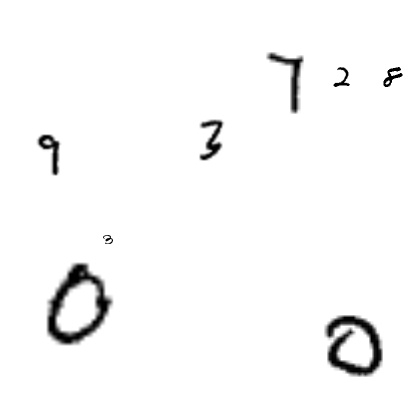 7 2 8
9 3
3
0 0